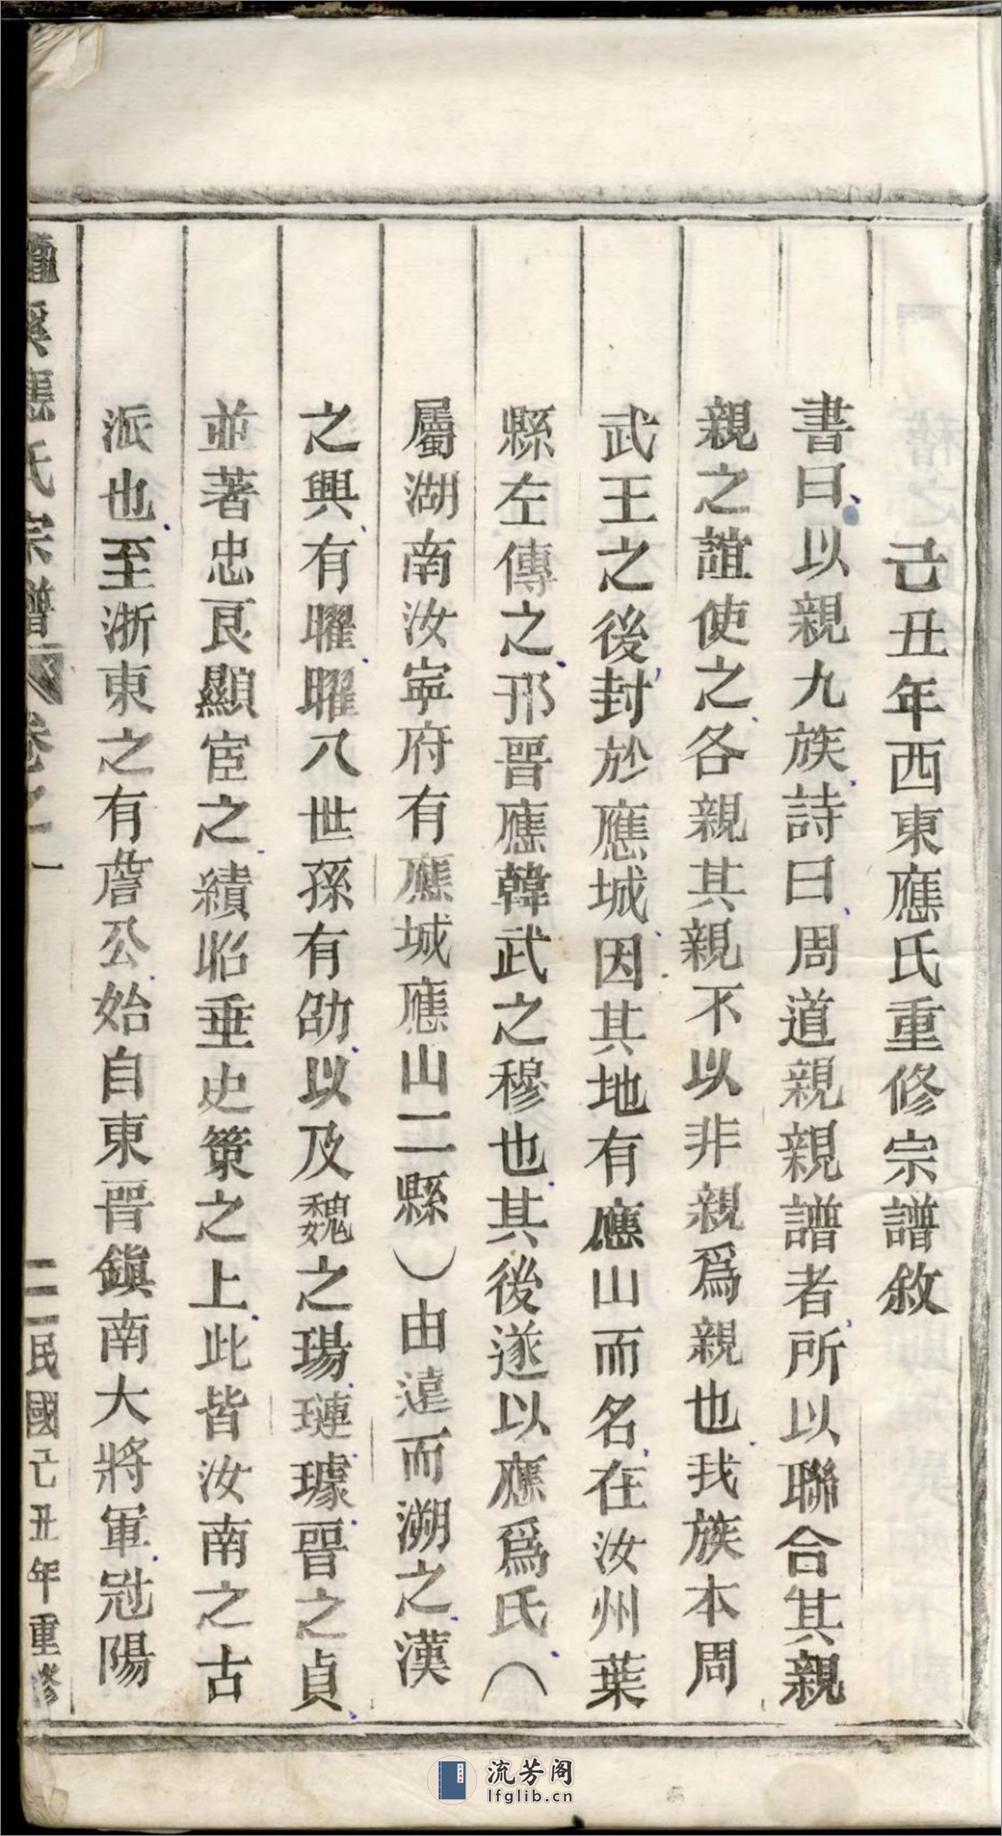 己丑年西東應氏重修宗譜敘
書曰以親九族詩曰周道親親譜者所以聯合其親
親之誼使之各親其親不以非親爲親也我族本周
武王之後封於應城因其地有應山而名在汝州葉
縣左傳之邘晋應韓武之穆也其後遂以應爲氏（
屬湖南汝寧府有應城應山二縣）由遠而溯之漢
之興有曜曜八世孫有劭以及魏之瑒璉璩晋之貞
並著忠良顯宦之績昭垂史策之上此皆汝南之古
派也至浙東之有詹公始自東晋鎮南大將軍冠陽
溪應氏宗譜 卷之一 二 民國己丑年重修
流芳阁
lfglib.cn